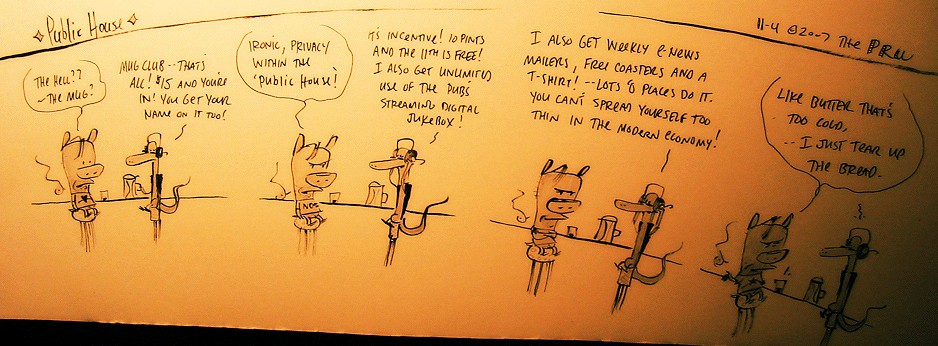 Public House
11-4 ©2007 The
THE HELL??
--THE MUG?
MUG CLUB--THAT'S
ALL! $15 AND YOU'RE
IN! YOU GET YOUR
NAME ON IT TOO!
IRONIC, PRIVACY
WITHIN THE
"PUBLIC HOUSE"!
ITS INCENTIVE! 10 PINTS
AND THE 11TH IS FREE!
I ALSO GET UNLIMITED
USE OF THE PUBS
STREAMING DIGITAL
JUKEBOX!
I ALSO GET WEEKLY E-NEWS
MAILERS, FREE COASTERS AND A
T-SHIRT! --LOTS O PLACES DO IT.
YOU CAN'T SPREAD YOURSELF TOO
THIN IN THE MODERN ECONOMY!
LIKE BUTTER THAT'S
TOO COLD,
--I JUST TEAR UP
THE BREAD.